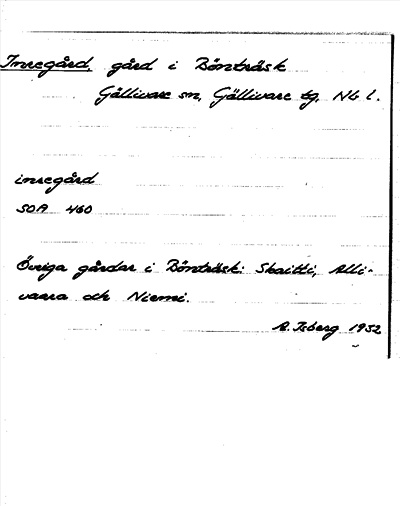 Inregård, gård i Bönträsk
Gällivare sn, Gällivare tg, Nb l.
inregård
SOA 460
Övriga gårdar i Bönträsk: Skaitti, Alli-
vaara och Niemi.
A. Isberg 1952